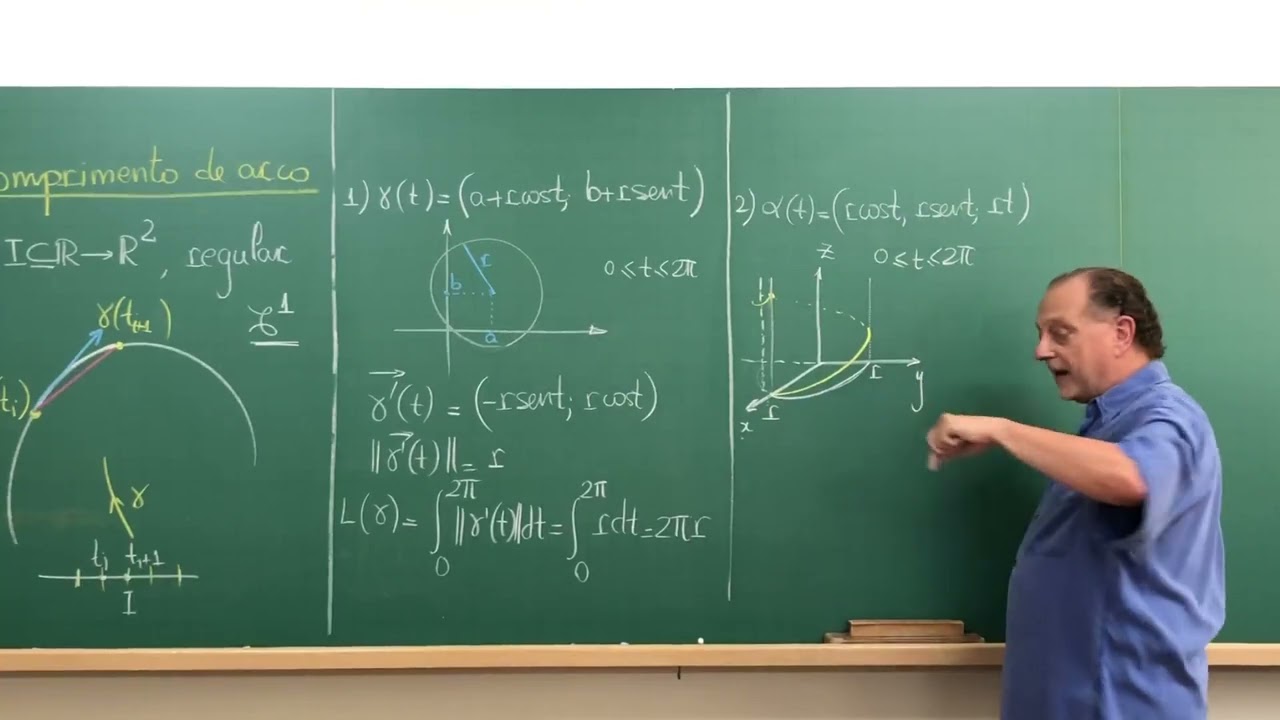 omprimento de arco
I⊆R→R², regular
γ(t_{i+1})
ℒ¹
t_i)
γ
t_i t_{i+1}
I
1) γ(t)=(a+rcost; b+rsent)
r
0≤t≤2π
b
a
γ'(t) = (-rsent; rcost)
||γ'(t)||= r
L(γ)= ∫₀^{2π} ||γ'(t)||dt= ∫₀^{2π} rdt=2πr
2) α(t)=(rcost, rsent; rt)
z 0≤t≤2π
r y
r
x